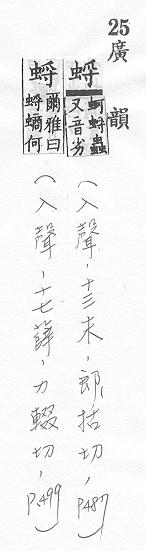 25廣韻
蛶 蚵蛶蟲又音劣
(入聲,十三末,郎括切,p487)
蛶 爾雅曰蛶螪何
(入聲,十七薛,力輟切,p.499)